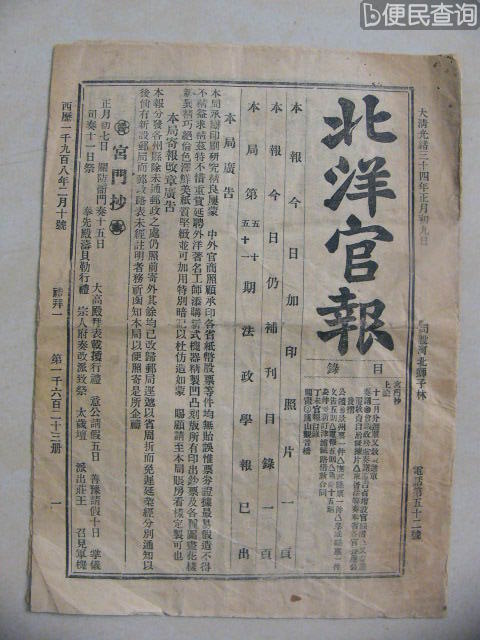 便民查询
大清光緒三十四年正月初九日
北洋官報
局設河北獅子林
電話第五十二號
目錄
宮門抄
上諭
本報今日加印照片一頁
本報今日仍補刊目錄一頁
本局第五十五十一期法政學報已出
本局廣告
本局承辦印刷研究精良屢蒙 中外官商照顧承印各省紙幣股票等件均無貽誤惟票券證據最易假造不得
不精益求精茲特不惜重資延聘外洋著名工師添購新式機器精製凹凸刻版所有印出鈔票及各種圖畫花樣
新異精巧絕倫色澤鮮美紙質堅緻並可加用特別暗記以杜仿造如蒙 賜顧請至本局賬房看樣定製可也
本局寄報改章廣告
本報分發各州縣除未通郵政之處仍照前寄外其餘均已改歸郵局逕遞以省周折而免遲延業經分別通知以
後倘有新設郵局而郵政路表未經註明者務祈函知本局以便照寄是所企禱
宮門抄
正月初七日
奏十五日
司奏十一日祭
奉先殿濤貝勒行禮
大高殿拜表載
行禮
意公請假五日
善豫請假十日
掌儀
宗人府奏改派致祭
太歲壇
派出莊王
召見軍機
西歷一千九百八年二月十號
禮拜一
第一千六百二十三册
一